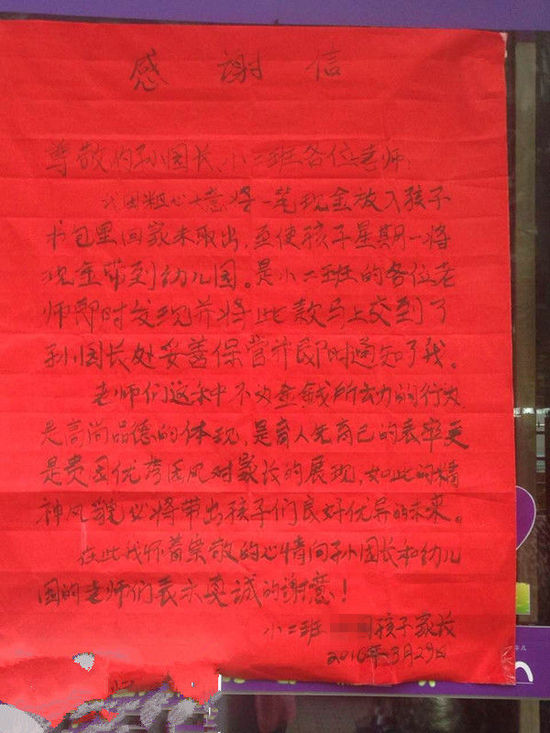 感谢信
尊敬的孙园长、小二班各位老师：
我因粗心大意将一笔现金放入孩子
书包里回家未取出，至使孩子星期一将
现金带到幼儿园。是小二班的各位老
师即时发现并将此款马上交到了
孙园长处妥善保管并即时通知了我。
老师们这种不为金钱所动的行为
是高尚品德的体现，是育人先育己的表率更
是贵园优秀园风对家长的展现，如此的精
神风貌必将带出孩子们良好优异的未来。
在此我怀着崇敬的心情向孙园长和幼儿
园的老师们表示真诚的谢意！
小二班 孩子家长
2016年3月29日